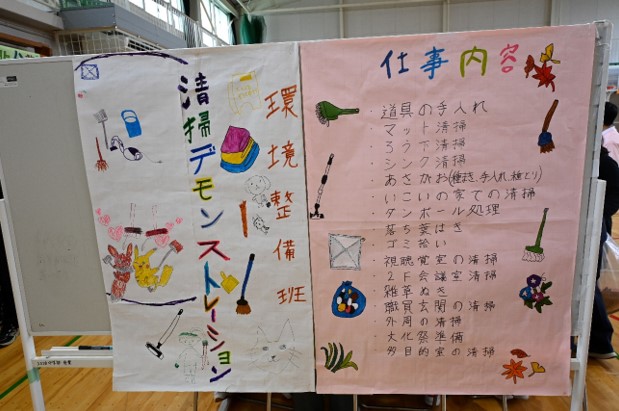 環境整備班
清掃デモンストレーション
仕事内容
・道具の手入れ
・マット清掃
・ろう下清掃
・シンク清掃
・あさがお(種まき、手入れ、種とり)
・いこいの家での清掃
・ダンボール処理
・落ち葉はき
・ゴミ拾い
・視聴覚室の清掃
・2F会議室清掃
・雑草ぬき
・職員玄関の清掃
・外周の清掃
・大化祭準備
・多目的室の清掃